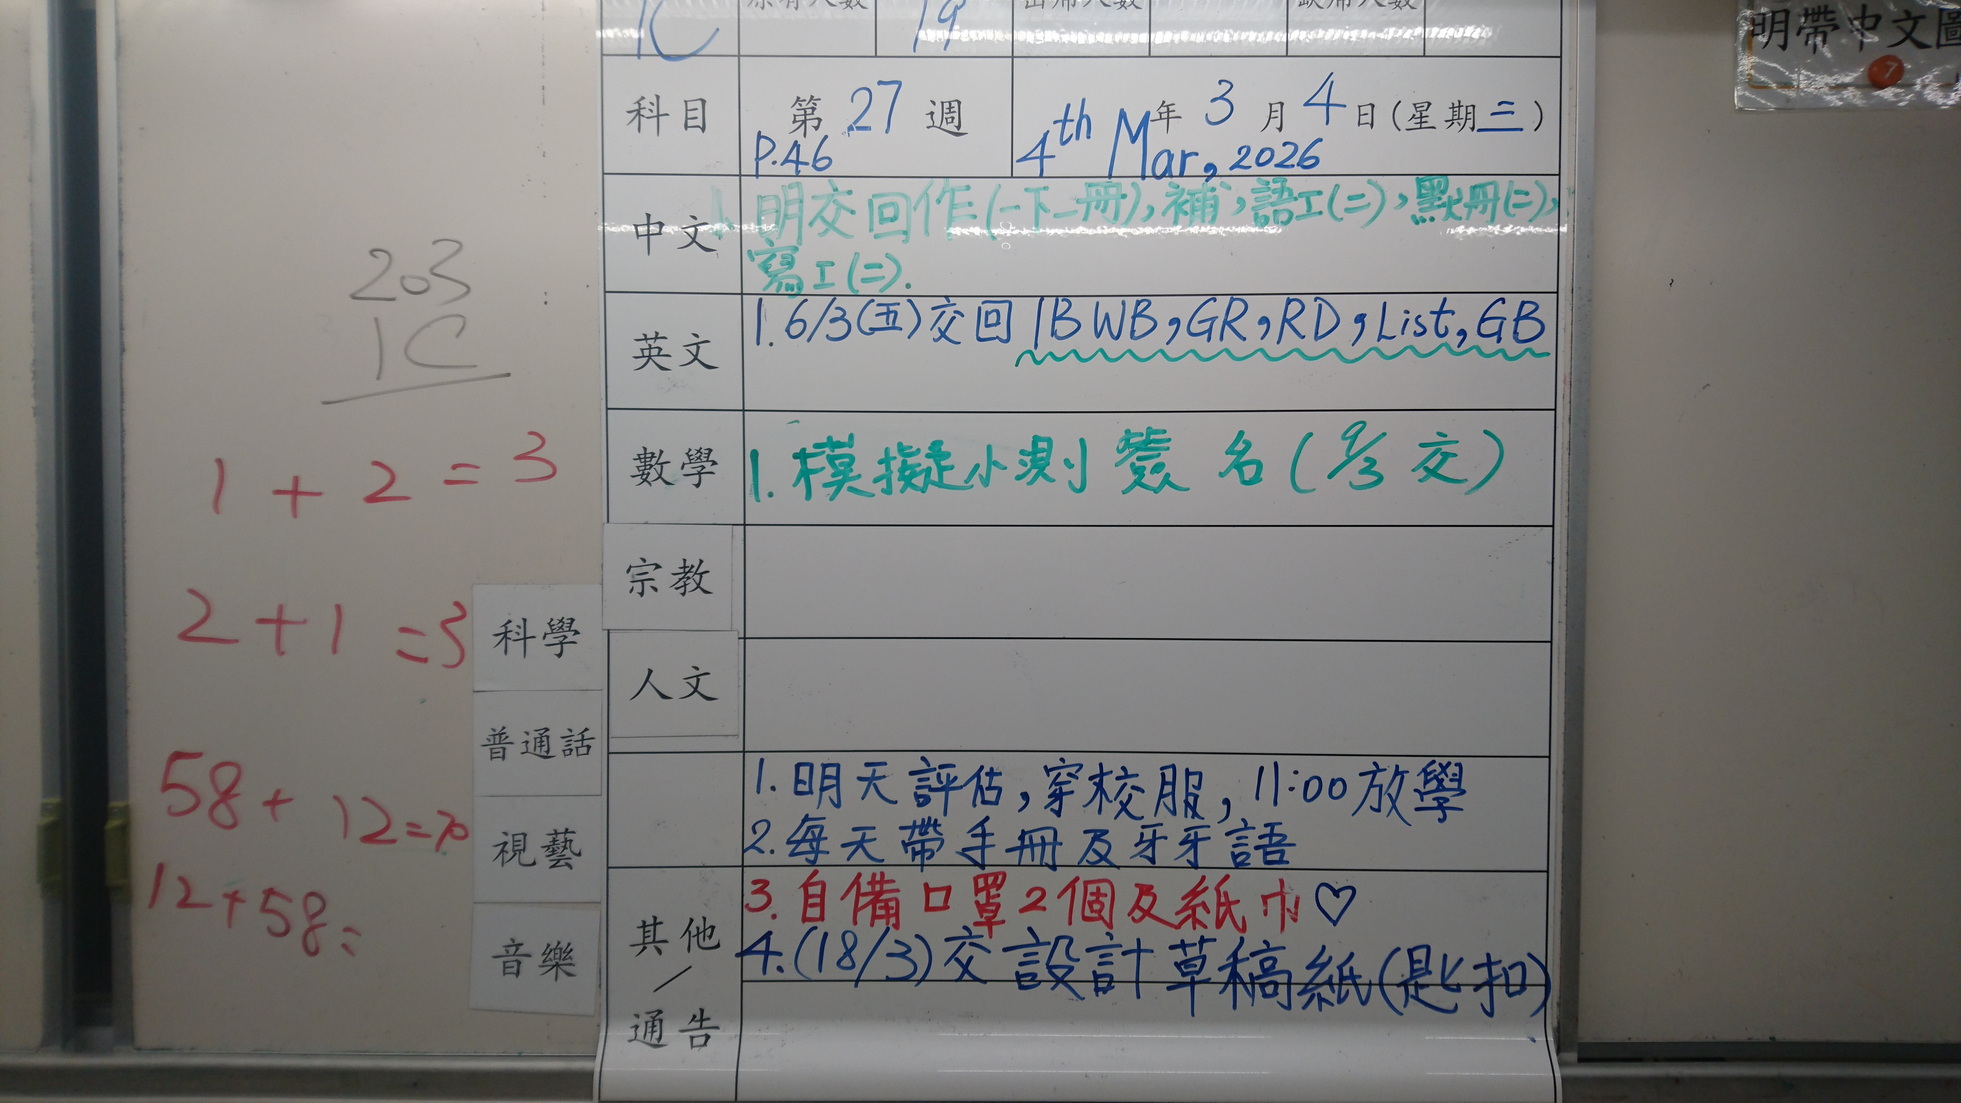 1C 19
明帶中文圖
科目 第 27 週 年 3 月 4 日(星期三)
P.46 4th Mar, 2026
中文 1. 明交回作(一下一冊), 補, 語工(二), 默冊(二),
寫工(二).
英文 1. 6/3(五)交回 1B WB, GR, RD, List, GB
數學 1. 模擬小測簽名(9/3交)
宗教
人文
1. 明天評估, 穿校服, 11:00放學
2. 每天帶手冊及牙牙語
3. 自備口罩2個及紙巾♡
其他/通告
4. (18/3)交設計草稿紙(匙扣)
203
1C
1 + 2 = 3
2 + 1 = 3
58 + 12 = 70
12 + 58 =
科學
普通話
視藝
音樂